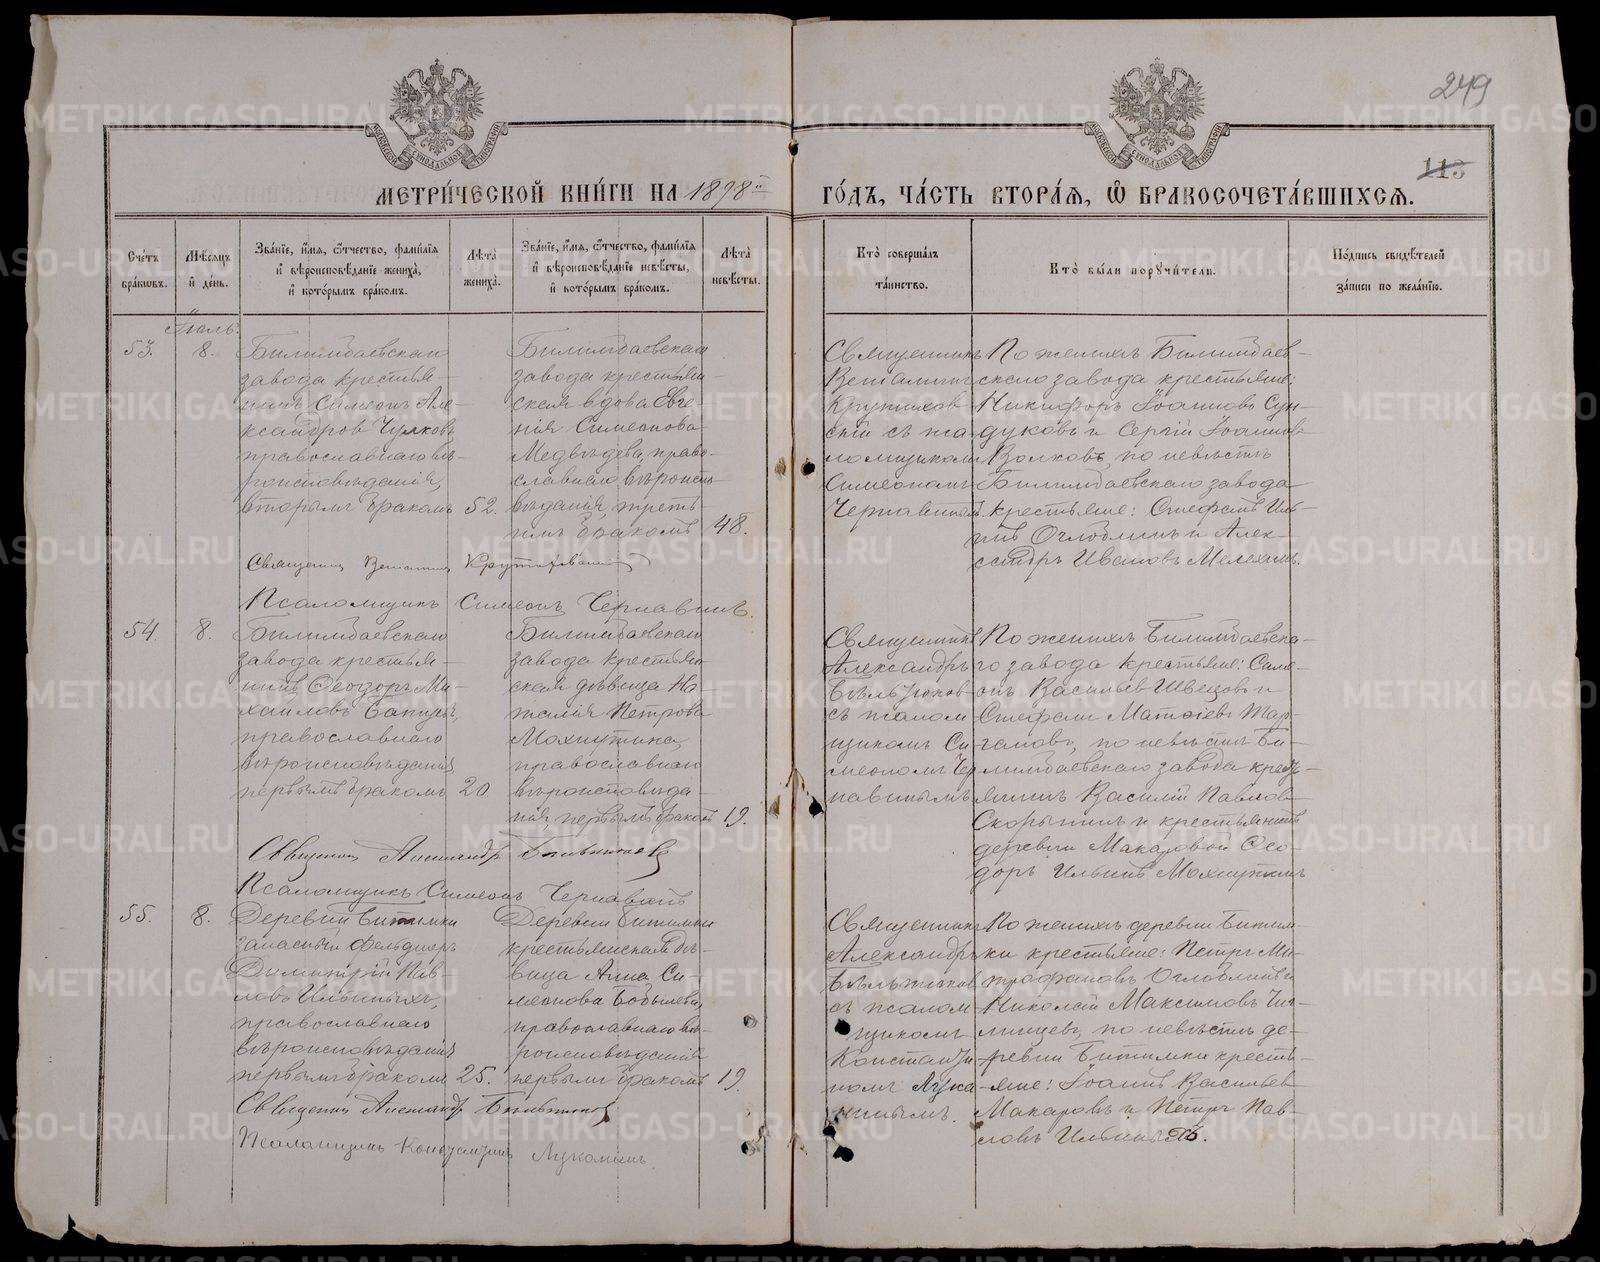 249
113
МЕТРИ́ЧЕСКОЙ КНИ́ГИ НА 1898й ГО́ДЪ, ЧА́СТЬ ВТОРА́Ѧ, Ѡ҆ БРАКОСОЧЕТА́ВШИХСѦ.
Сче́тъ бра́ковъ.
Мѣ́сѧцъ и҆ де́нь.
Зва́нїе, и҆́мѧ, ѻ҆́тчество, фами́лїѧ
и҆ вѣроисповѣ́данїе жениха̀,
и҆ кото́рымъ бра́комъ.
Лѣ́та жениха̀.
Зва́нїе, и҆́мѧ, ѻ҆́тчество, фами́лїѧ
и҆ вѣроисповѣ́данїе невѣ́сты,
и҆ кото́рымъ бра́комъ.
Лѣ́та невѣ́сты.
Кто̀ соверша́лъ
та́инство.
Кто̀ бы́ли порꙋчи́тели.
По́дпись свидѣ́телей
за́писи по жела́нїю.
Іюль.
53.
8.
Билимбаевскаго
завода крестья-
нинъ Симеонъ Але-
ксандровъ Чулковъ
православнаго вѣ-
роисповѣданія,
вторымъ бракомъ
52.
Билимбаевскаго
завода крестьян-
ская вдова Евге-
нія Симеонова
Медвѣдева, право-
славнаго вѣроиспо-
вѣданія, треть-
имъ бракомъ
48.
Священникъ
Веніаминъ
Крутихов-
скій съ пса-
ломщикомъ
Симеономъ
Чернавинымъ
По женихѣ Билимбаев-
скаго завода крестьяне:
Никифоръ Іоанновъ Сун-
дуковъ и Сергій Іоанновъ
Волковъ, по невѣстѣ
Билимбаевскаго завода
крестьяне: Стефанъ Иль-
инъ Оглоблинъ и Алек-
сандръ Ивановъ Мелехинъ.
Священникъ Веніаминъ Крутиховскій
Псаломщикъ Симеонъ Чернавинъ.
54.
8.
Билимбаевскаго
завода крестья-
нинъ Ѳеодоръ Ми-
хаиловъ
православнаго
вѣроисповѣданія
первымъ бракомъ
20.
Билимбаевскаго
завода крестьян-
ская дѣвица На-
талія Петрова
Мохнуткина,
православнаго
вѣроисповѣда-
нія первымъ бракомъ
19.
Священникъ
Александръ
Бѣльтюковъ
съ псалом-
щикомъ Си-
меономъ Чер-
навинымъ
По женихѣ Билимбаевска-
го завода крестьяне: Симе-
онъ Васильевъ Швецовъ и
Стефанъ Матѳіевъ Жар-
гановъ, по невѣстѣ Би-
лимбаевскаго завода крестья-
янинъ Василій Павловъ
Скорынинъ и крестьянинъ
деревни Макаровой Ѳео-
доръ Ильинъ Мохнуткинъ
Священникъ Александръ Бѣльтюковъ
Псаломщикъ Симеонъ Чернавинъ
55.
8.
Деревни Битимки
запасный фельдшеръ
Димитрій Пав-
ловъ Ильиныхъ,
православнаго
вѣроисповѣданія
первымъ бракомъ
25.
Деревни Битимки
крестьянская дѣ-
вица Анна Си-
меонова Бобылева,
православнаго вѣ-
роисповѣданія
первымъ бракомъ
19.
Священникъ
Александръ
Бѣльтюковъ
съ псалом-
щикомъ
Константи-
номъ Лука-
нинымъ.
По женихѣ деревни Битим-
ки крестьяне: Петръ Ми-
трофановъ Оглоблинъ и
Николай Максимовъ Чи-
лищевъ, по невѣстѣ де-
ревни Битимки кресть-
яне: Іоаннъ Васильевъ
Макаровъ и Петръ Пав-
ловъ Ильиныхъ.
Священникъ Александръ Бѣльтюковъ
Псаломщикъ Константинъ Луканинъ.
METRIKI.GASO-URAL.RU